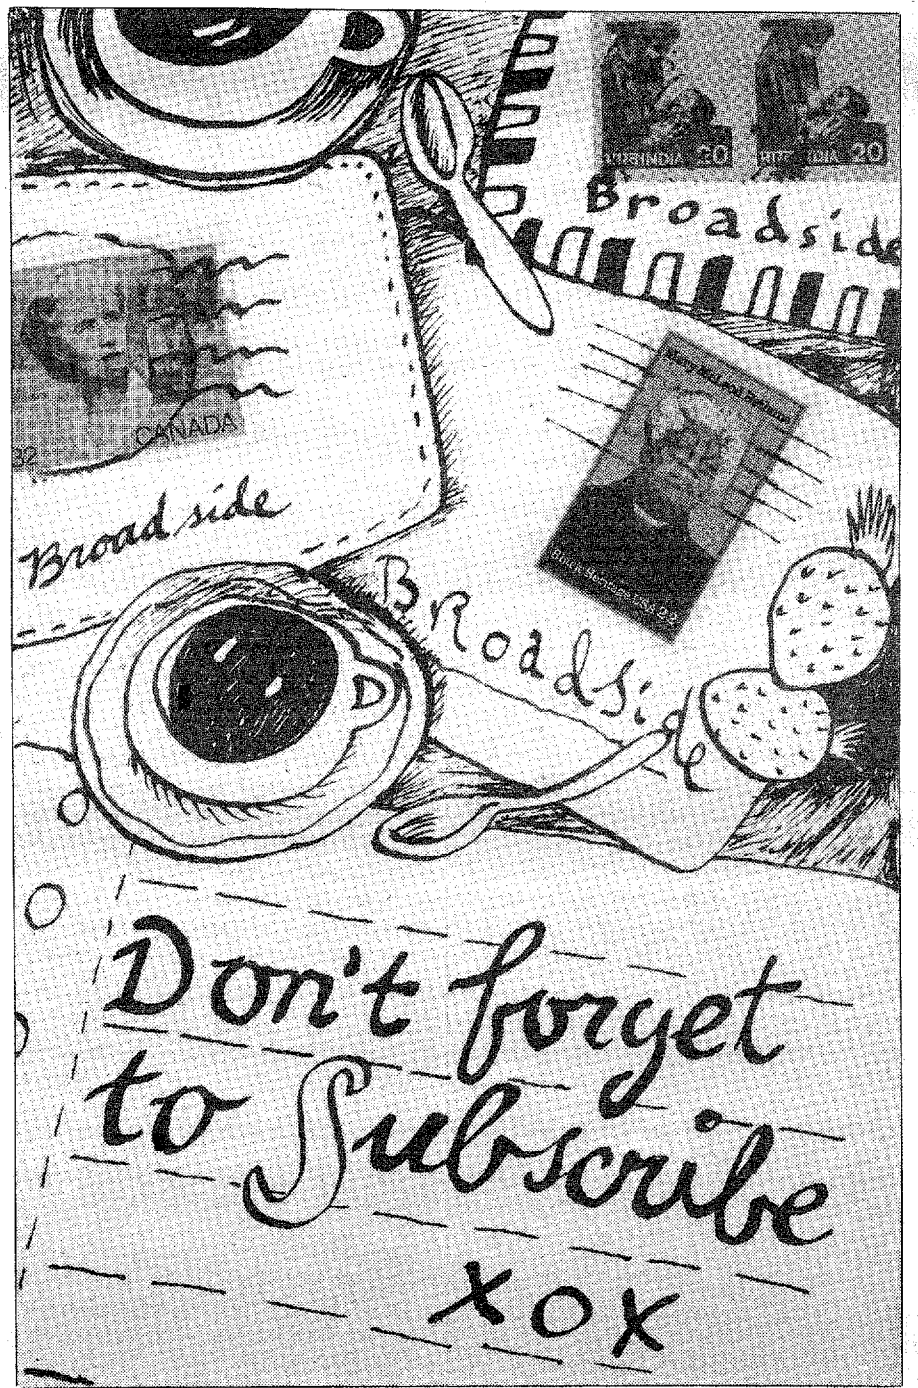 20
20
Broadside
CANADA
32
Broadside
Mary McLeod Bethune
Black Heritage USA 22
BRoadside
Don't forget
to Subscribe
xox